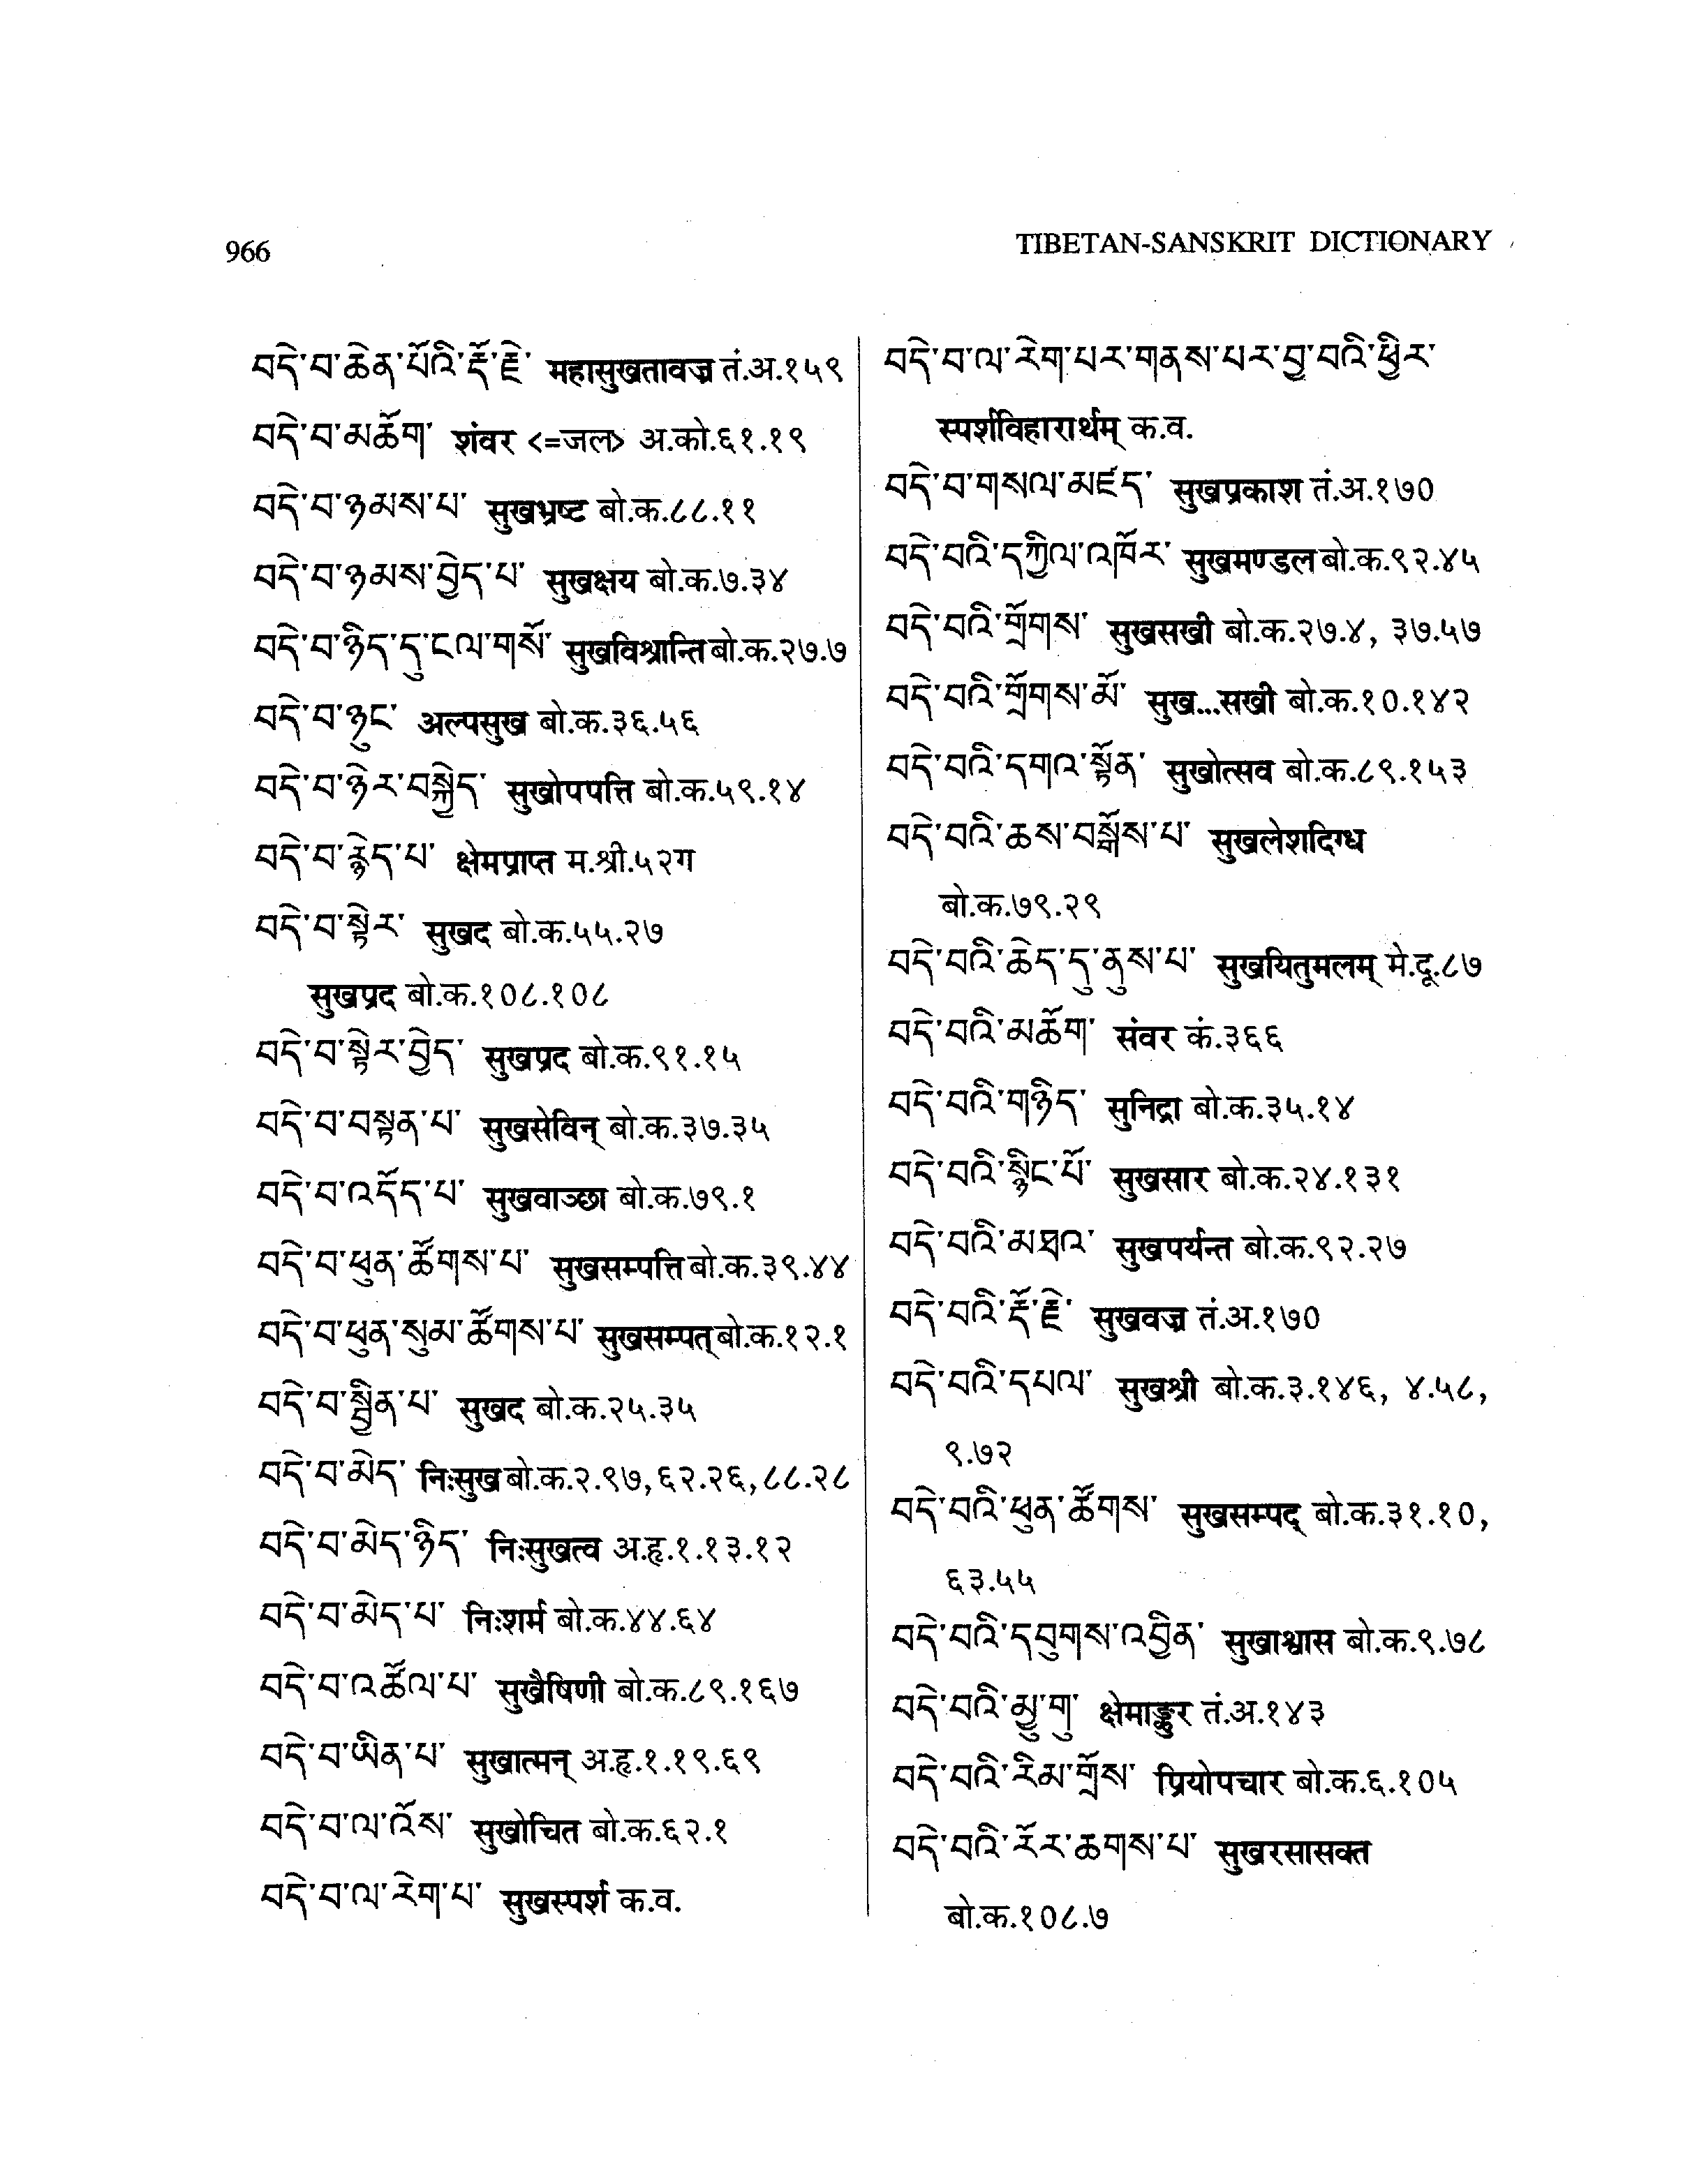 966
TIBETAN-SANSKRIT DICTIONARY
བདེ་བ་ཆེན་པོའི་རྡོ་རྗེ་ महासुखतावज्र तं.अ.१५९
བདེ་བ་མཆོག་ शंवर <=जल> अ.को.६१.१९
བདེ་བ་ཉམས་པ་ सुखभ्रष्ट बो.क.८८.११
བདེ་བ་ཉམས་བྱེད་པ་ सुखक्षय बो.क.७.३४
བདེ་བ་ཉིད་དུ་ངལ་གསོ་ सुखविश्रान्ति बो.क.२७.७
བདེ་བ་ཉུང་ अल्पसुख बो.क.३६.५६
བདེ་བ་ཉེར་བསྐྱེད་ सुखोपपत्ति बो.क.५९.१४
བདེ་བ་རྙེད་པ་ क्षेमप्राप्त म.श्री.५२ग
བདེ་བ་སྟེར་ सुखद बो.क.५५.२७
सुखप्रद बो.क.१०८.१०८
བདེ་བ་སྟེར་བྱེད་ सुखप्रद बो.क.९१.१५
བདེ་བ་བསྟན་པ་ सुखसेविन् बो.क.३७.३५
བདེ་བ་འདོད་པ་ सुखवाञ्छा बो.क.७९.१
བདེ་བ་ཕུན་ཚོགས་པ་ सुखसम्पत्ति बो.क.३९.४४
བདེ་བ་ཕུན་སུམ་ཚོགས་པ་ सुखसम्पत् बो.क.१२.१
བདེ་བ་སྦྱིན་པ་ सुखद बो.क.२५.३५
བདེ་བ་མེད་ निःसुख बो.क.२.९७,६२.२६,८८.२८
བདེ་བ་མེད་ཉིད་ निःसुखत्व अ.हृ.१.१३.१२
བདེ་བ་མེད་པ་ निःशर्म बो.क.४४.६४
བདེ་བ་འཚོལ་པ་ सुखैषिणी बो.क.८९.१६७
བདེ་བ་ཡིན་པ་ सुखात्मन् अ.हृ.१.१९.६९
བདེ་བ་ལ་འོས་ सुखोचित बो.क.६२.१
བདེ་བ་ལ་རེག་པ་ सुखस्पर्श क.व.
བདེ་བ་ལ་རེག་པར་གནས་པར་བྱ་བའི་ཕྱིར་
स्पर्शविहारार्थम् क.व.
བདེ་བ་གསལ་མཛད་ सुखप्रकाश तं.अ.१७०
བདེ་བའི་དཀྱིལ་འཁོར་ सुखमण्डल बो.क.९२.४५
བདེ་བའི་གྲོགས་ सुखसखी बो.क.२७.४, ३७.५७
བདེ་བའི་གྲོགས་མོ་ सुख...सखी बो.क.१०.१४२
བདེ་བའི་དགའ་སྟོན་ सुखोत्सव बो.क.८९.१५३
བདེ་བའི་ཆས་བསྒོས་པ་ सुखलेशदिग्ध
बो.क.७९.२९
བདེ་བའི་ཆེད་དུ་ནུས་པ་ सुखयितुमलम् मे.दू.८७
བདེ་བའི་མཆོག་ संवर कं.३६६
བདེ་བའི་གཉིད་ सुनिद्रा बो.क.३५.१४
བདེ་བའི་སྙིང་པོ་ सुखसार बो.क.२४.१३१
བདེ་བའི་མཐའ་ सुखपर्यन्त बो.क.९२.२७
བདེ་བའི་རྡོ་རྗེ་ सुखवज्र तं.अ.१७०
བདེ་བའི་དཔལ་ सुखश्री बो.क.३.१४६, ४.५८,
९.७२
བདེ་བའི་ཕུན་ཚོགས་ सुखसम्पद् बो.क.३१.१०,
६३.५५
བདེ་བའི་དབུགས་འབྱིན་ सुखाश्वास बो.क.९.७८
བདེ་བའི་མྱུ་གུ་ क्षेमाङ्कुर तं.अ.१४३
བདེ་བའི་རིམ་གྲོས་ प्रियोपचार बो.क.६.१०५
བདེ་བའི་རོར་ཆགས་པ་ सुखरसासक्त
बो.क.१०८.७